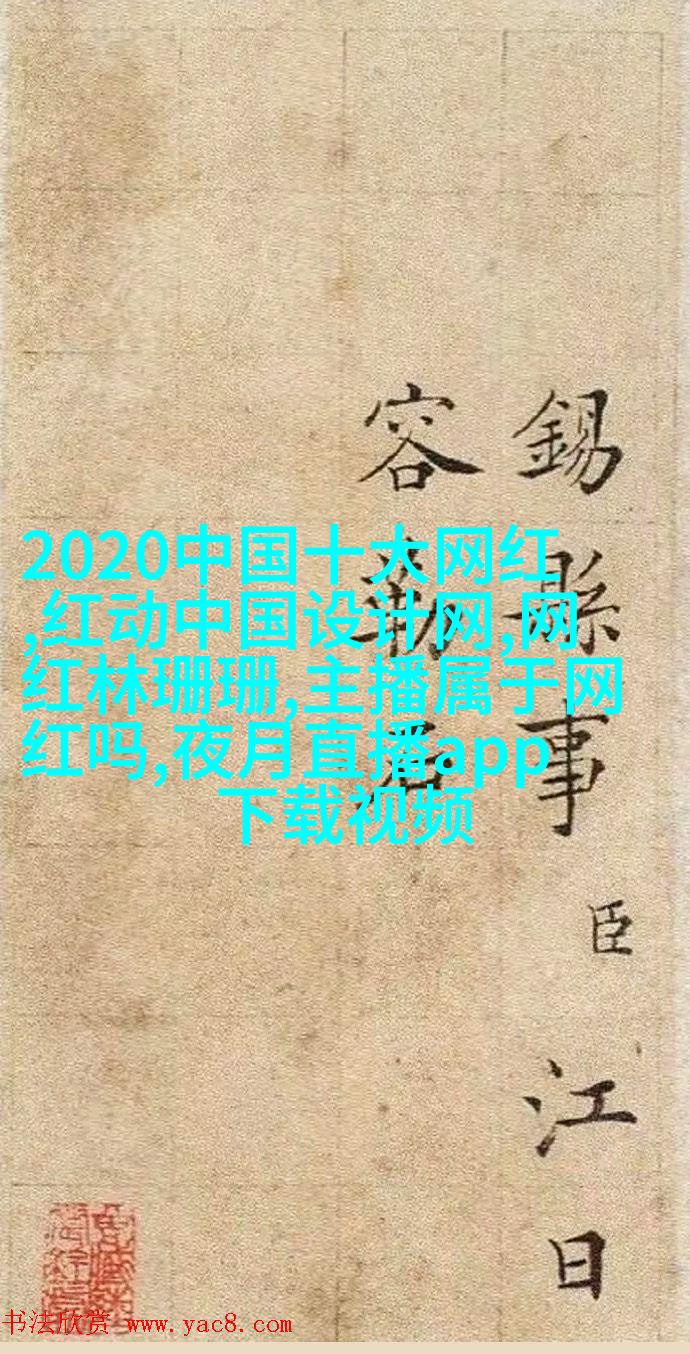 錫縣事臣江日
容
2020中国十大网红
,红动中国设计网,网
红林珊珊,主播属于网
红吗,夜月直播app
下载视频
书法欣赏 www.yac8.com